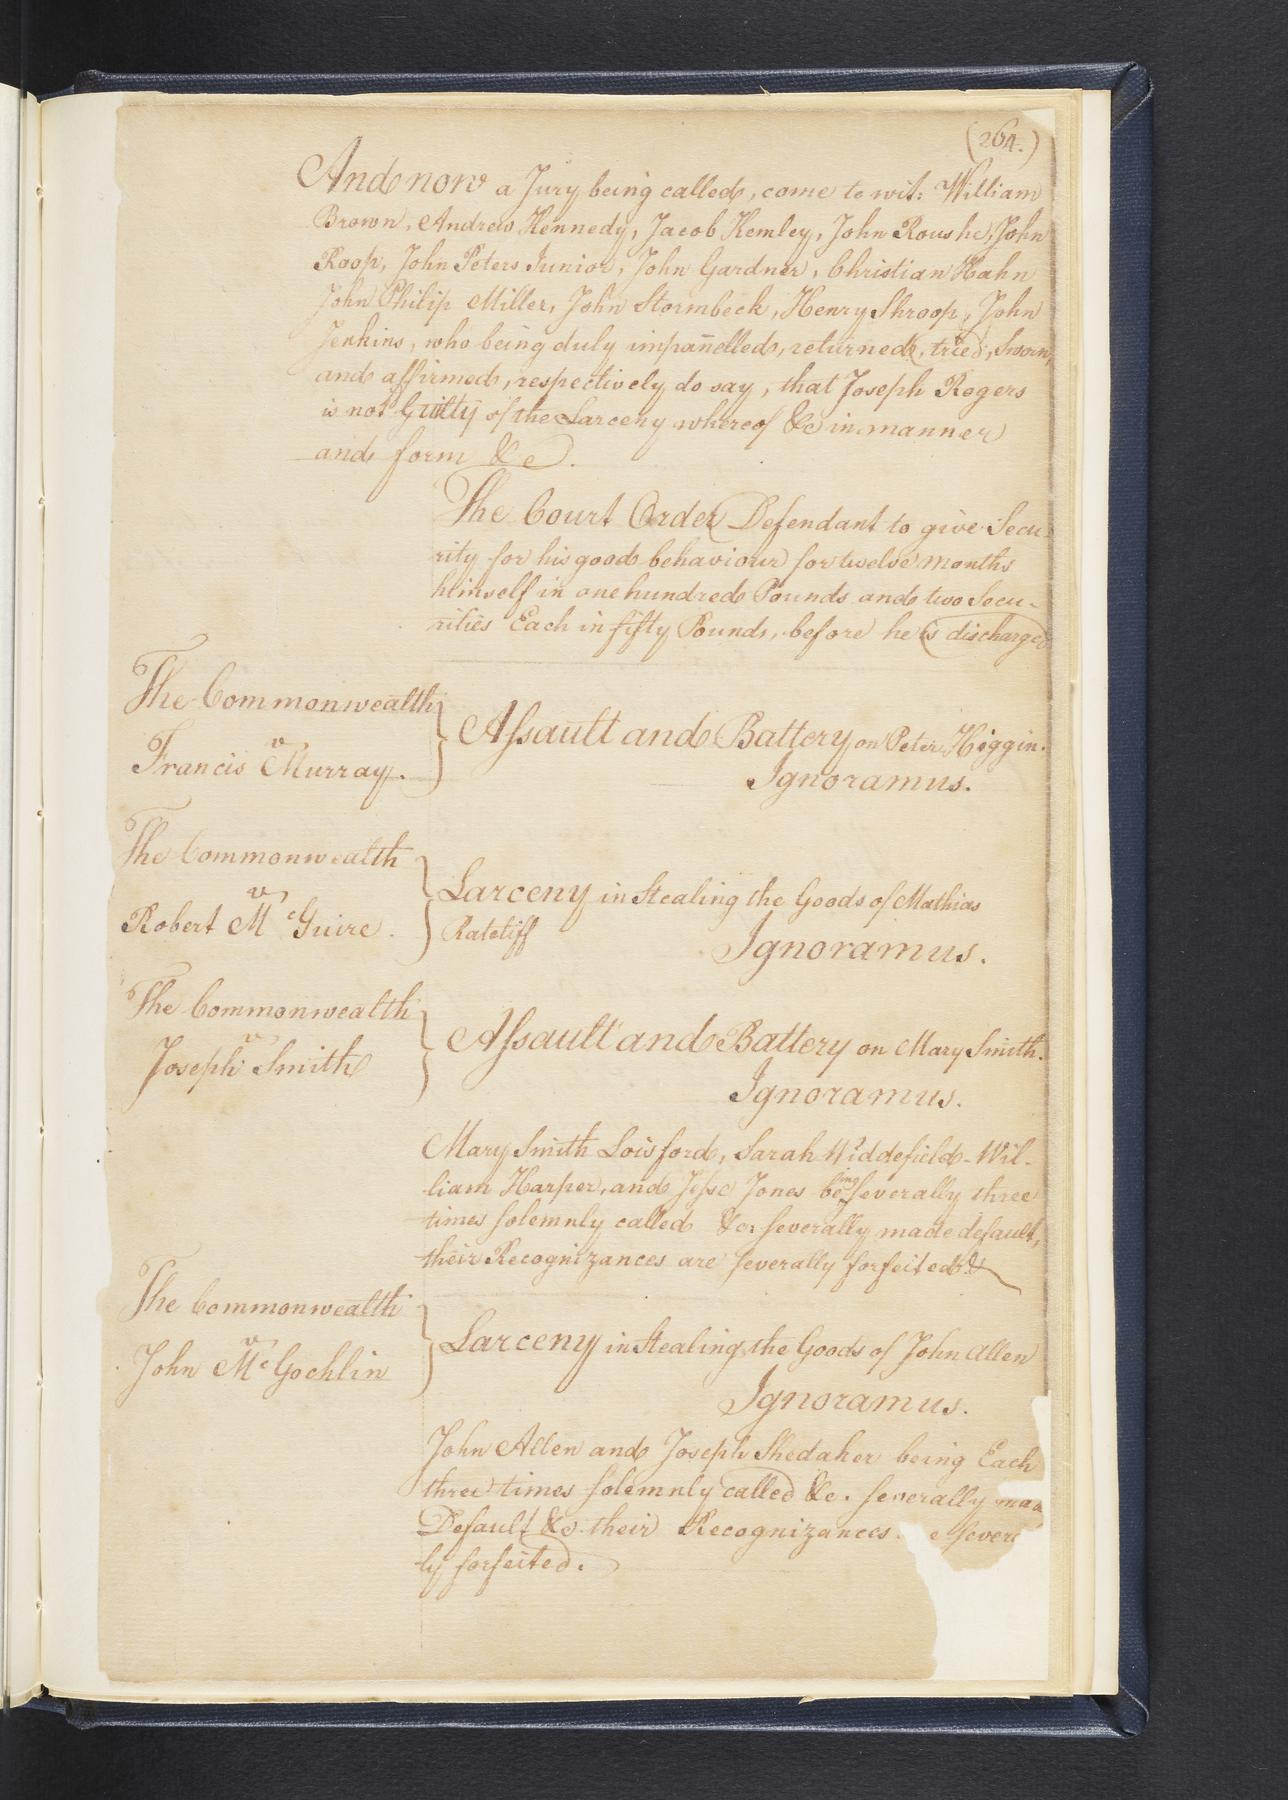 (264.)
And now a Jury being called, come to wit: William
Brown, Andrew Kennedy, Jacob Kemley, John Roushe, John
Roop, John Peters Junior, John Gardner, Christian Hahn
John Philip Miller, John Stormbeck, Henry Shroop, John
Jenkins, who being duly impañelled, returned, tried, Sworn,
and affirmed, respectively do say, that Joseph Rogers
is not Guilty of the Larceny whereof &c in manner
and form &c.
The Court Order Defendant to give Secu-
rity for his good behaviour for twelve months
himself in one hundred Pounds and two Secu-
rities Each in fifty Pounds, before he is discharged
The Commonwealth
v
Francis Murray.
Assault and Battery on Peter Higgin.
Ignoramus.
The Commonwealth
v
Robert Mc Guire.
Larceny in Stealing the Goods of Mathias
Ratcliff
Ignoramus.
The Commonwealth
v
Joseph Smith
Assault and Battery on Mary Smith.
Ignoramus.
Mary Smith Lois ford, Sarah Widdefield Wil-
liam Harper, and Jesse Jones being severally three
times solemnly called &c. severally made default,
their Recognizances are severally forfeited &
The Commonwealth
v
John Mc Gochlin
Larceny in Stealing the Goods of John Allen
Ignoramus.
John Allen and Joseph Shedaker being Each
three times solemnly called &c. severally mad
Default &c. their Recognizances e sever
ly forfeited.